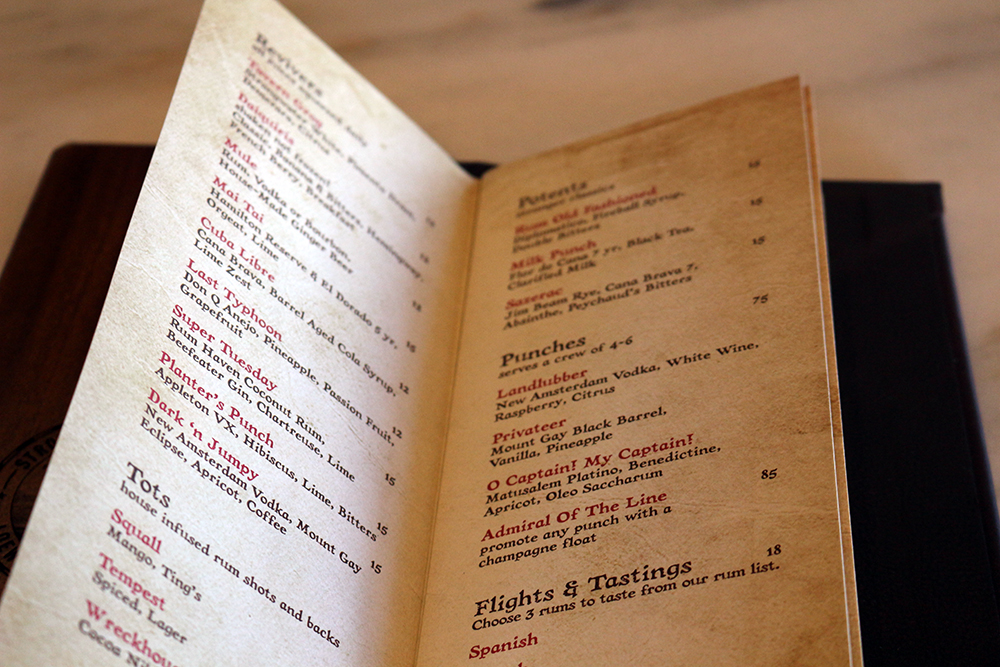 Revivers
all juices squeezed daily
Tavern Grog
Daiquiris
Classic, Banana &
French Berry, Breakfast
Mule
Rum, Vodka or Bourbon,
House-Made Ginger Beer
Mai Tai
Hamilton Reserve & El Dorado 5 yr,
Orgeat, Lime
15
Cuba Libre
Cana Brava, Barrel Aged Cola Syrup,
Lime Zest
12
Last Typhoon
Don Q Anejo, Pineapple, Passion Fruit,
Grapefruit
12
Super Tuesday
Rum Haven Coconut Rum,
Beefeater Gin, Chartreuse, Lime
15
Planter's Punch
Appleton VX, Hibiscus, Lime, Bitters
15
Dark 'n Jumpy
New Amsterdam Vodka, Mount Gay
Eclipse, Apricot, Coffee
15
Tots
house infused rum shots and backs
Squall
Mango, Ting's
Tempest
Spiced, Lager
Cocoa
Potents
stronger classics
15
Rum Old Fashioned
Diplomatico, Fireball Syrup,
Double Bitters
15
Milk Punch
Flor de Cana 7 yr, Black Tea,
Clarified Milk
15
Sazerac
Jim Beam Rye, Cana Brava 7,
Absinthe, Peychaud's Bitters
75
Punches
serves a crew of 4-6
Landlubber
New Amsterdam Vodka, White Wine,
Raspberry, Citrus
Privateer
Mount Gay Black Barrel,
Vanilla, Pineapple
O Captain! My Captain!
Matusalem Platino, Benedictine,
Apricot, Oleo Saccharum
85
Admiral Of The Line
promote any punch with a
champagne float
18
Flights & Tastings
Choose 3 rums to taste from our rum list.
Spanish